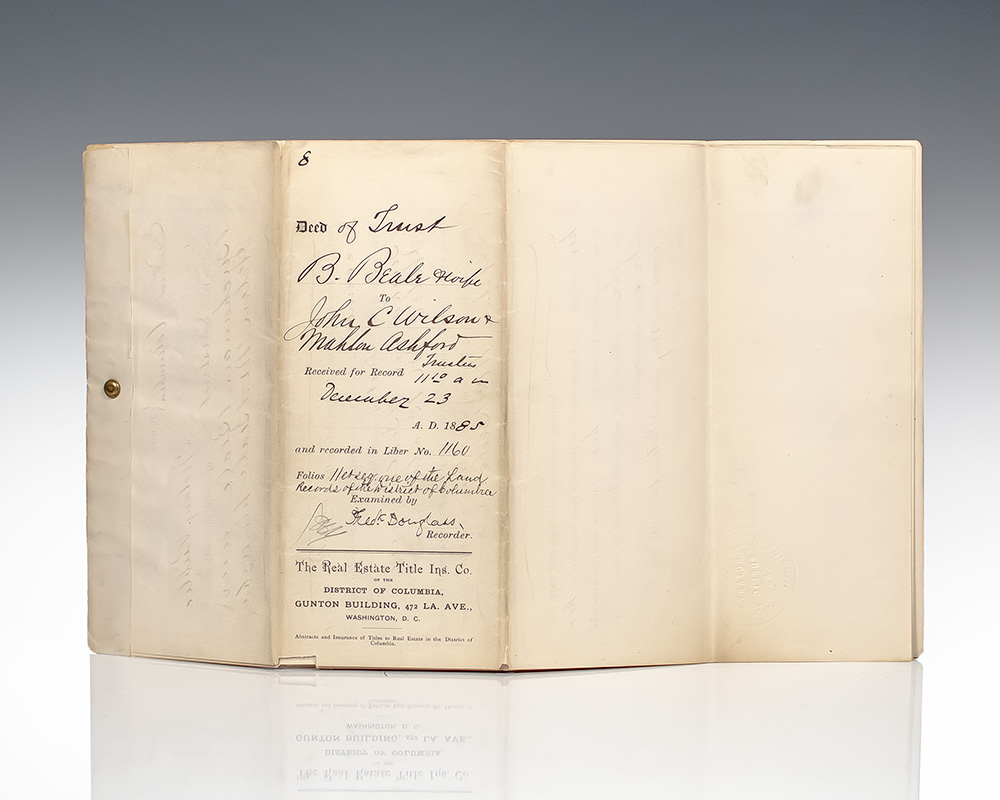 8
Deed of Trust
B. Beale & wife
To
John C Wilson &
Mahlon Ashford
Trustees
Received for Record 11 10 a m
December 23
A. D. 1885
and recorded in Liber No. 1160
Folios 11 et seq. one of the Land
Records of the District of Columbia
Examined by
Fredk Douglass,
Recorder.
The Real Estate Title Ins. Co.
OF THE
DISTRICT OF COLUMBIA,
GUNTON BUILDING, 472 LA. AVE.,
WASHINGTON, D. C.
Abstracts and Insurance of Titles to Real Estate in the District of
Columbia.